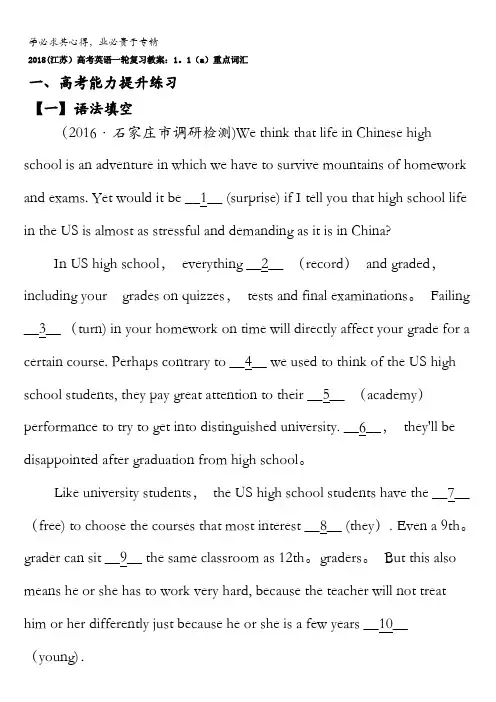 学必求其心得，业必贵于专精
2018(江苏）高考英语一轮复习教案：1。1（a）重点词汇
一、高考能力提升练习
【一】语法填空
（2016·石家庄市调研检测)We think that life in Chinese high
school is an adventure in which we have to survive mountains of homework
and exams. Yet would it be __1__ (surprise) if I tell you that high school life
in the US is almost as stressful and demanding as it is in China?
In US high school， everything __2__ （record） and graded，
including your grades on quizzes， tests and final examinations。 Failing
__3__（turn) in your homework on time will directly affect your grade for a
certain course. Perhaps contrary to __4__ we used to think of the US high
school students, they pay great attention to their __5__ （academy）
performance to try to get into distinguished university. __6__， they'll be
disappointed after graduation from high school。
Like university students， the US high school students have the __7__
（free) to choose the courses that most interest __8__ (they）. Even a 9th。
grader can sit __9__ the same classroom as 12th。graders。 But this also
means he or she has to work very hard, because the teacher will not treat
him or her differently just because he or she is a few years __10__
（young).